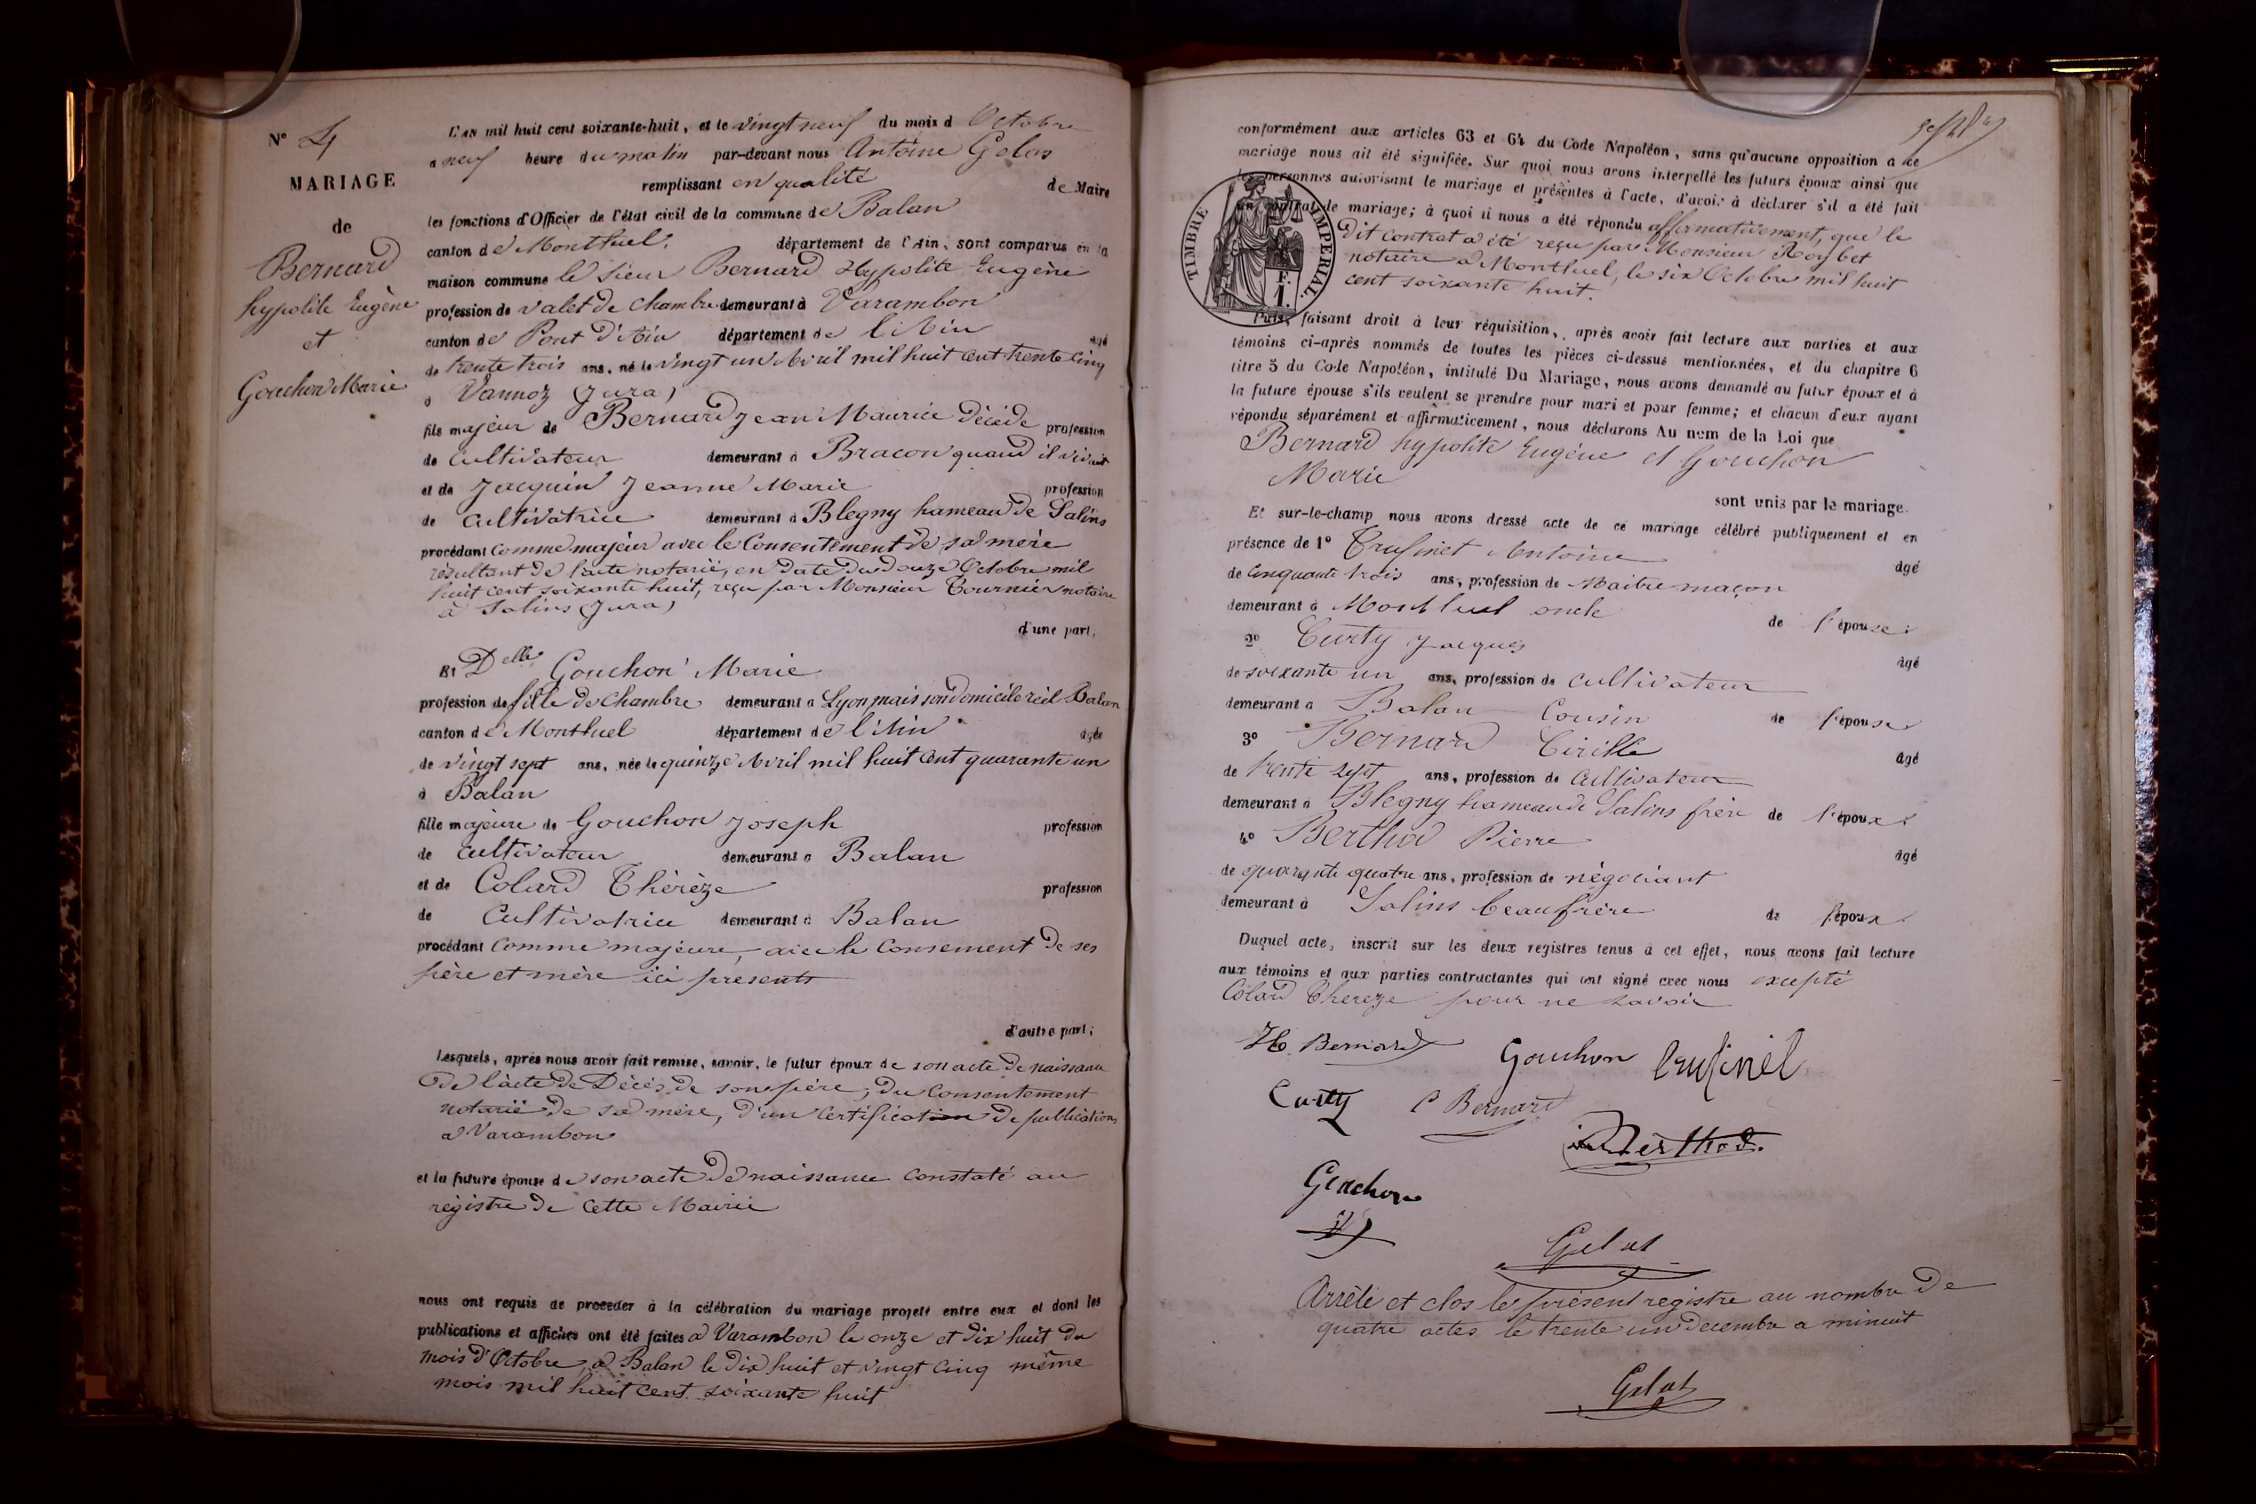 N° 4
MARIAGE
de
Bernard
hypolite Eugène
et
Gouchon Marie
L'an mil huit cent soixante-huit, et le vingt neuf du mois d Octobre
a neuf heure du matin par-devant nous Antoine Gelas
remplissant en qualité de Maire
les fonctions d'Officier de l'état civil de la commune de Balan
canton de Montluel, département de l'Ain, sont comparus en la
maison commune le sieur Bernard Hypolite Eugène
profession de valet de chambre demeurant à Varambon
canton de Pont d'Ain département de l'Ain agé
de trente trois ans, né le vingt un Avril mil huit cent trente cinq
à Vannoz (Jura)
fils majeur de Bernard Jean Maurice Décédé profession
de cultivateur demeurant à Bracon quand il vivait
et de Jacquin Jeanne Marie profession
de cultivatrice demeurant à Blegny hameau de Salins
procédant comme majeur avec le Consentement de sa mère
résultant de l'acte notarié, en date du douze Octobre mil
huit cent soixante huit, reçu par Monsieur Tournier notaire
à Salins (Jura)
d'une part;
Et Delle Gouchon Marie
profession de fille de chambre demeurant à Lyon mais son domicile réel Balan
canton de Montluel département de l'Ain agée
de vingt sept ans, née le quinze Avril mil huit cent quarante un
à Balan
fille majeure de Gouchon Joseph profession
de cultivateur demeurant à Balan
et de Colard Thérèze profession
de Cultivatrice demeurant à Balan
procédant comme majeure, avec le Consement de ses
père et mère ici presents
d'autre part;
Lesquels, après nous avoir fait remise, savoir, le futur époux de son acte de naissance
de l'acte de Décès de son père, du Consentement
notarié de sa mère, d'un certification de publications
a Varambon
et la future épouse de son acte de naissance constaté au
registre de cette Mairie
nous ont requis de proceder à la célébration du mariage projeté entre eux et dont les
publications et affiches ont été faites à Varambon le onze et dix huit du
mois d'Octobre, à Balan le dix huit et vingt cinq même
mois mil huit cent soixante huit
conformément aux articles 63 et 64 du Code Napoléon, sans qu'aucune opposition à ce
mariage nous ait été signifiée. Sur quoi nous avons interpellé les futurs époux ainsi que
les personnes autorisant le mariage et présentes à l'acte, d'avoir à déclarer s'il a été fait
un contrat de mariage; à quoi il nous a été répondu affirmativement, que le
dit contrat a été reçu par Monsieur Roybet
notaire à Montluel, le six Octobre mil huit
cent soixante huit.
TIMBRE IMPERIAL
F.
1.
Puis, faisant droit à leur réquisition, après avoir fait lecture aux parties et aux
témoins ci-après nommés de toutes les pièces ci-dessus mentionnées, et du chapitre 6
titre 5 du Code Napoléon, intitulé Du Mariage, nous avons demandé au futur époux et à
la future épouse s'ils veulent se prendre pour mari et pour femme; et chacun d'eux ayant
répondu séparément et affirmativement, nous déclarons Au nom de la Loi que
Bernard hypolite Eugène et Gouchon
Marie
sont unis par le mariage.
Et sur-le-champ nous avons dressé acte de ce mariage célébré publiquement et en
présence de 1° Trufinet Antoine agé
de cinquante trois ans, profession de Maitre maçon
demeurant à Montluel oncle de l'épouse
2° Curty Jacques agé
de soixante un ans, profession de cultivateur
demeurant à Balan Cousin de l'épouse
3° Bernard Cirille agé
de trente sept ans, profession de cultivateur
demeurant à Blegny hameau de Salins frère de l'époux
4° Berthod Pierre agé
de quarante quatre ans, profession de négociant
demeurant à Salins beaufrère de l'époux
Duquel acte, inscrit sur les deux registres tenus à cet effet, nous avons fait lecture
aux témoins et aux parties contractantes qui ont signé avec nous excepté
Colard Thereze pour ne savoir
H. Bernard Gouchon Trufinel
Curty C Bernard
Berthod.
Gouchon
Gelas
Arrêté et clos le présent registre au nombre de
quatre actes le trente un decembre a minuit
Gelas